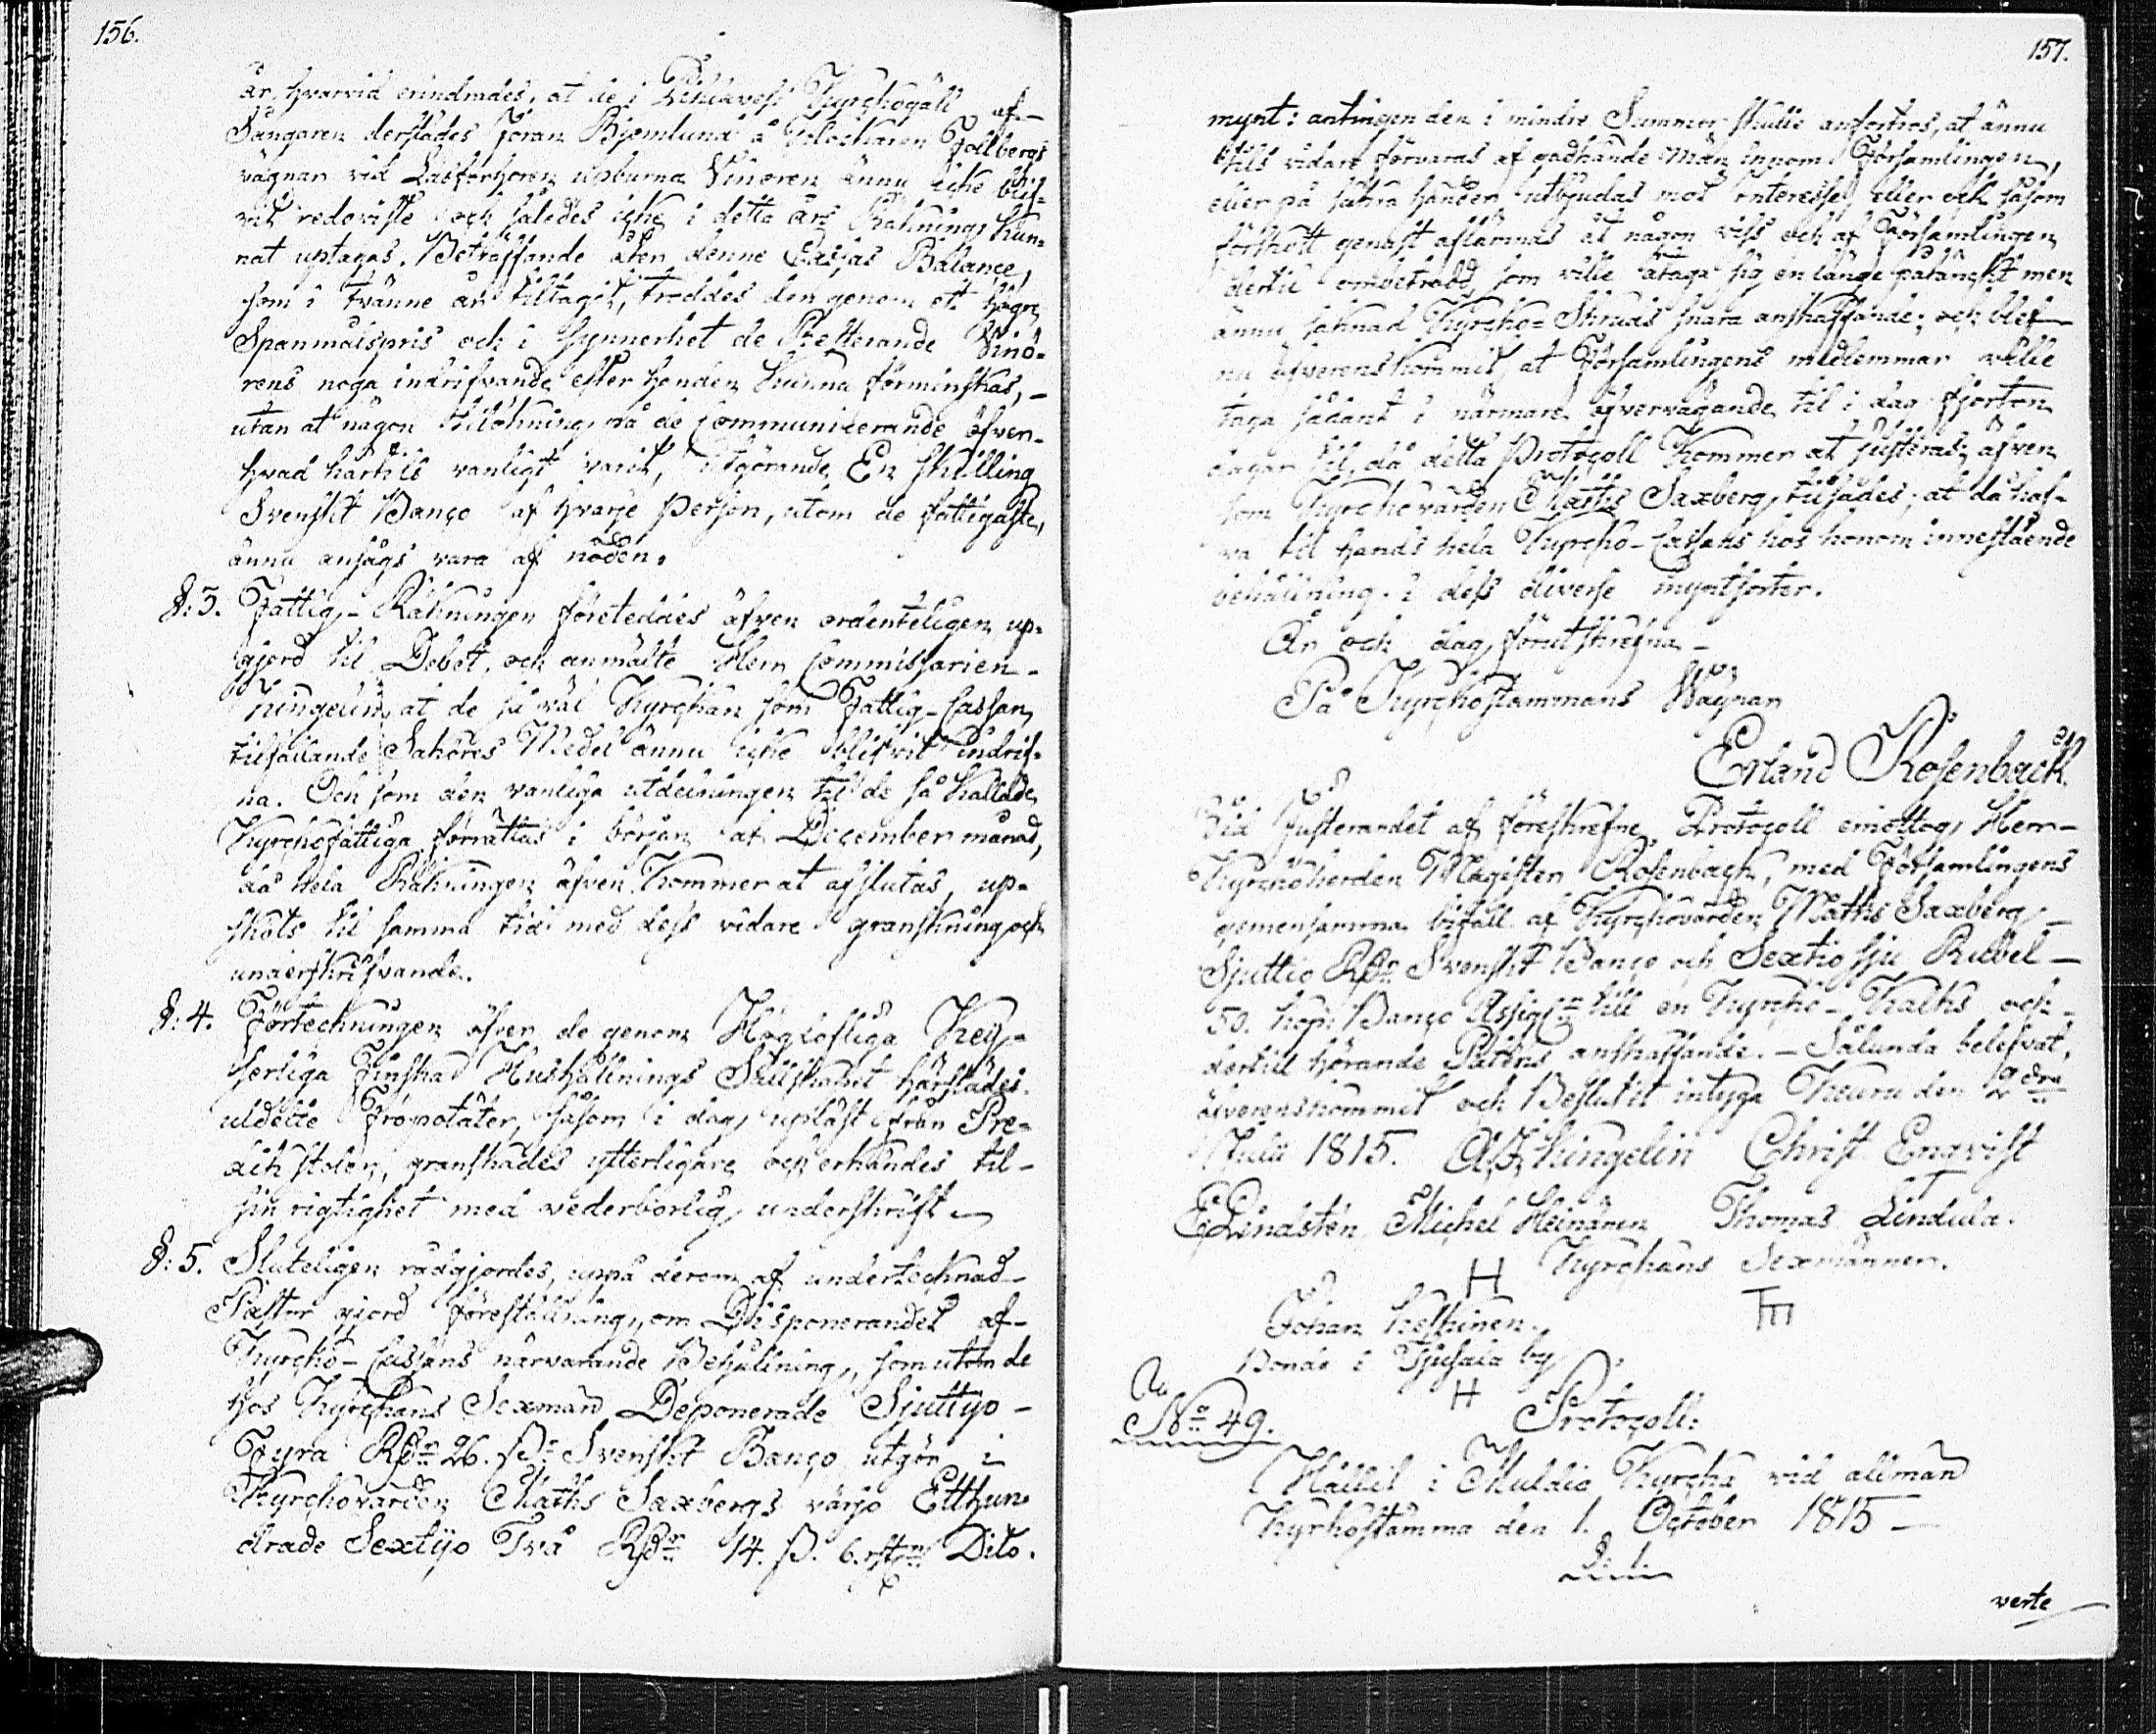 156.
år, hvarvid erindrades, at de i Pihlaves Kyrckogäll af-
Sångaren derstädes Johan Björnlund å Klockaren Follbergs
vägnar vid Läsförhören upburna Vinören ännu icke blif-
vit redoviste och således icke i detta års Räkning kun-
nat uptagas. Beträffande åter denne Cassas Balance,
som i tvänne år tiltagit, troddes den genom ett högre
Spanmålspris och i synnerhet de Resterande Vinö-
rens noga indrifvande efter handen kunna förminskas, -
utan at någon tilökning på de Communicerande öfver-
hvad härtils vanligt varit, utgörande En skilling
Svenskt Banco af hvarje Person, utom de fattigaste,
ännu ansågs vara af nöden.
§: 3. Fattig-Räkningen företeddes äfven ordenteligen up-
gjord til Debet, och anmälte Herr Commissarien
Kingelin, at de så väl Kyrckan som Fattig-Cassan
tilfallande Saköres Medel ännu icke blifvit indrif-
na. Och som den vanliga utdelningen til de så kallade
Kyrckofattiga förrättas i början af December månad,
då hela Räkningen äfven kommer at afslutas, up-
sköts til samma tid med dess vidare granskning och
underskrifvande.
§: 4. Förtechningen öfver de genom Höglofliga Key-
serliga Finska Hushållnings Sällskapet härstädes
utdelte Fröpotäter, såsom i dag upläst från Pre-
dikstolen, granskades ytterligare och erkändes til-
sin rigtighet med vederbörlig underskrift -
§: 5. Sluteligen rådgjordes, uppå derom af undertecknad
Pastor gjord föreställning, om Disponerandet af-
Kyrcko-Cassans närvarande Behållning, som utom de
hos Kyrckans Sexmän Deponerade Sjuttijo-
Fyra Rdr 26. sk. Svenskt Banco utgör i
Kyrckovärden Maths Saxbergs värjo Etthun-
drade Sextijo Två Rdr 14. s. 6. rst. Dito.
157.
mynt: antingen den i mindre Summor skulle anförtros, at ännu
tils vidare förvaras af godkände män innom Församlingen,
eller på säkra händer utbjudas mot interesse, eller ock såsom
förskott genast aflämnas åt någon viss och af Församlingen
dertil ombetrodd, som ville åtaga sig en länge påtänkt men
ännu saknad Kyrcko-Skruds snara anskaffande; och blef
nu öfverenskommit, at Församlingens medlemmar ville
taga sådant i närmare öfvervägande til i dag fjorton
dagar til, då detta Protocoll kommer at justeras; äfven
som Kyrckovärden Maths Saxberg tilsades, at då haf-
va til hands hela Kyrcko-Cassans hos honom innestående
behållning i dess diverse myntsorter.
År och dag förutskrefna -
På Kyrckostämmans Vägnar
Erland Rosenback.
Vid Justerandet af föreskrefne Protocoll emottog Herr-
Kyrckoherden Magister Rosenback, med Församlingens
gemensamma bifall af Kyrckovärden Maths Saxberg
Sjuttio Rdr Svenskt Banco och Sextio sju Rubel
50. kop. Banco Assign till en Kyrcko-Kalks och
dertill hörande Patens anskaffande. - Sålunda belefvat,
öfverenskommit och Beslutit intyga Keuru den 2dra
Julii 1815. Kingelin Christ. Enqvist
E Lindsten Michel Heinänen Thomas Lindula.
H Kyrckans Sexmänner.
Johan Keskinen.
Bonde i Tjusala by
H
No 49. Protocoll:
Hållit i Multia Kyrcka vid allmän
Kyrkostämma den 1. October 1815 -
§: 1.
verte